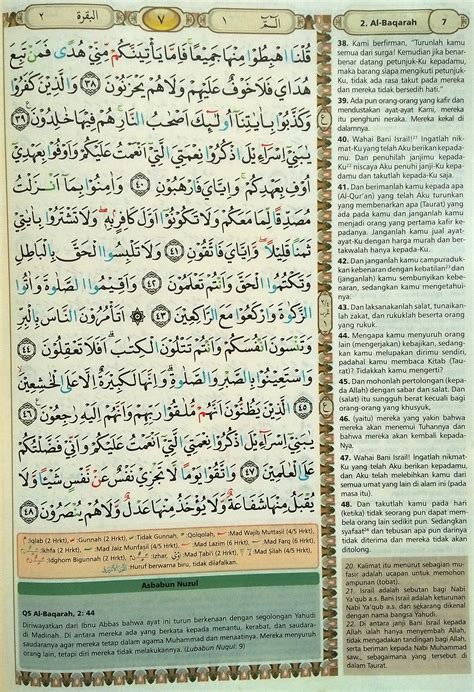 البقرة ٢
٧
الم ١
قُلْنَا اهْبِطُوْا مِنْهَا جَمِيْعًا فَاِمَّا يَأْتِيَنَّكُمْ مِّنِّيْ هُدًى فَمَنْ تَبِعَ
هُدَايَ فَلَا خَوْفٌ عَلَيْهِمْ وَلَا هُمْ يَحْزَنُوْنَ ٣٨ وَالَّذِيْنَ كَفَرُوْا
وَكَذَّبُوْا بِاٰيٰتِنَآ اُولٰۤىِٕكَ اَصْحٰبُ النَّارِ هُمْ فِيْهَا خٰلِدُوْنَ ٣٩
يٰبَنِيْٓ اِسْرَاۤءِيْلَ اذْكُرُوْا نِعْمَتِيَ الَّتِيْٓ اَنْعَمْتُ عَلَيْكُمْ وَاَوْفُوْا بِعَهْدِيْٓ
اُوْفِ بِعَهْدِكُمْ وَاِيَّايَ فَارْهَبُوْنِ ٤٠ وَاٰمِنُوْا بِمَآ اَنْزَلْتُ
مُصَدِّقًا لِّمَا مَعَكُمْ وَلَا تَكُوْنُوْٓا اَوَّلَ كَافِرٍۢ بِهٖ وَلَا تَشْتَرُوْا بِاٰيٰتِيْ
ثَمَنًا قَلِيْلًا وَّاِيَّايَ فَاتَّقُوْنِ ٤١ وَلَا تَلْبِسُوا الْحَقَّ بِالْبَاطِلِ
وَتَكْتُمُوا الْحَقَّ وَاَنْتُمْ تَعْلَمُوْنَ ٤٢ وَاَقِيْمُوا الصَّلٰوةَ وَاٰتُوا
الزَّكٰوةَ وَارْكَعُوْا مَعَ الرَّاكِعِيْنَ ٤٣ اَتَأْمُرُوْنَ النَّاسَ بِالْبِرِّ
وَتَنْسَوْنَ اَنْفُسَكُمْ وَاَنْتُمْ تَتْلُوْنَ الْكِتٰبَ اَفَلَا تَعْقِلُوْنَ ٤٤
وَاسْتَعِيْنُوْا بِالصَّبْرِ وَالصَّلٰوةِ وَاِنَّهَا لَكَبِيْرَةٌ اِلَّا عَلَى الْخٰشِعِيْنَ
٤٥ الَّذِيْنَ يَظُنُّوْنَ اَنَّهُمْ مُّلٰقُوْا رَبِّهِمْ وَاَنَّهُمْ اِلَيْهِ رٰجِعُوْنَ ٤٦
يٰبَنِيْٓ اِسْرَاۤءِيْلَ اذْكُرُوْا نِعْمَتِيَ الَّتِيْٓ اَنْعَمْتُ عَلَيْكُمْ وَاَنِّيْ فَضَّلْتُكُمْ
عَلَى الْعٰلَمِيْنَ ٤٧ وَاتَّقُوْا يَوْمًا لَّا تَجْزِيْ نَفْسٌ عَنْ نَّفْسٍ شَيْـًٔا وَّلَا
يُقْبَلُ مِنْهَا شَفَاعَةٌ وَّلَا يُؤْخَذُ مِنْهَا عَدْلٌ وَّلَا هُمْ يُنْصَرُوْنَ ٤٨
:Iqlab (2 Hrkt), :Gunnah (2 Hrkt), :Tidak Gunnah, :Qolqolah, :Mad Wajib Muttasil (4/5 Hrkt),
:Ikhfa (2 Hrkt), :Mad Jaiz Munfasil (4/5 Hrkt), :Mad Lazim (6 Hrkt), :Mad Farq (6 Hrkt),
:Idghom Bigunnah (2 Hrkt), :Izhar, :Mad Tabi'i (2 Hrkt), :Mad Silah (4/5 Hrkt)
:Huruf berwarna biru, tidak dilafalkan.
Asbabun Nuzul
QS Al-Baqarah, 2: 44
Diriwayatkan dari Ibnu Abbas bahwa ayat ini turun berkenaan dengan segolongan Yahudi
di Madinah. Di antara mereka ada yang berkata kepada menantu, kerabat, dan saudara-
saudaranya agar mereka tetap dalam agama Muhammad dan menaatinya. Mereka menyuruh
orang lain, tetapi diri mereka tidak melakukannya. (Lubabun Nuqul: 9)
2. Al-Baqarah 7
38. Kami berfirman, "Turunlah kamu
semua dari surga! Kemudian jika benar-
benar datang petunjuk-Ku kepadamu,
maka barang siapa mengikuti petunjuk-
Ku, tidak ada rasa takut pada mereka
dan mereka tidak bersedih hati."
39. Adapun orang-orang yang kafir dan
mendustakan ayat-ayat Kami, mereka
itu penghuni neraka. Mereka kekal di
dalamnya.
40. Wahai Bani Israil!²¹ Ingatlah nik-
mat-Ku yang telah Aku berikan kepada-
mu. Dan penuhilah janjimu kepada-
Ku²² niscaya Aku penuhi janji-Ku kepa-
damu dan takutlah kepada-Ku saja.
41. Dan berimanlah kamu kepada apa
(Al-Qur'an) yang telah Aku turunkan
yang membenarkan apa (Taurat) yang
ada pada kamu dan janganlah kamu
menjadi orang yang pertama kafir ke-
padanya. Janganlah kamu jual ayat-
ayat-Ku dengan harga murah dan ber-
takwalah hanya kepada-Ku.
42. Dan janganlah kamu campuraduk-
kan kebenaran dengan kebatilan²³ dan
(janganlah) kamu sembunyikan kebe-
naran, sedangkan kamu mengetahui-
nya.
43. Dan laksanakanlah salat, tunaikan-
lah zakat, dan rukuklah beserta orang
yang rukuk.
44. Mengapa kamu menyuruh orang
lain (mengerjakan) kebajikan, sedang-
kan kamu melupakan dirimu sendiri,
padahal kamu membaca Kitab (Tau-
rat)? Tidakkah kamu mengerti?
45. Dan mohonlah pertolongan (kepa-
da Allah) dengan sabar dan salat. Dan
(salat) itu sungguh berat kecuali bagi
orang-orang yang khusyuk,
46. (yaitu) mereka yang yakin bahwa
mereka akan menemui Tuhannya dan
bahwa mereka akan kembali kepada-
Nya.
47. Wahai Bani Israil! Ingatlah nikmat-
Ku yang telah Aku berikan kepadamu
dan Aku telah melebihkan kamu dari
semua umat yang lain di alam ini (pada
masa itu).
48. Dan takutlah kamu pada hari
(ketika) tidak seorang pun dapat mem-
bela orang lain sedikit pun. Sedangkan
syafaat²⁴ dan tebusan apa pun darinya
tidak diterima dan mereka tidak akan
ditolong.
20. Kalimat itu menurut sebagian mu-
fasir adalah ucapan untuk memohon
ampunan (tobat).
21. Israil adalah sebutan bagi Nabi
Ya'qub a.s. Bani Israil adalah keturunan
Nabi Ya'qub a.s. dan sekarang dikenal
dengan nama bangsa Yahudi.
22. Di antara janji Bani Israil kepada
Allah ialah hanya menyembah Allah,
tidak mengadakan tandingan bagi Allah,
serta beriman kepada Nabi Muhammad
saw., sebagaimana yang tersebut di
dalam Taurat.